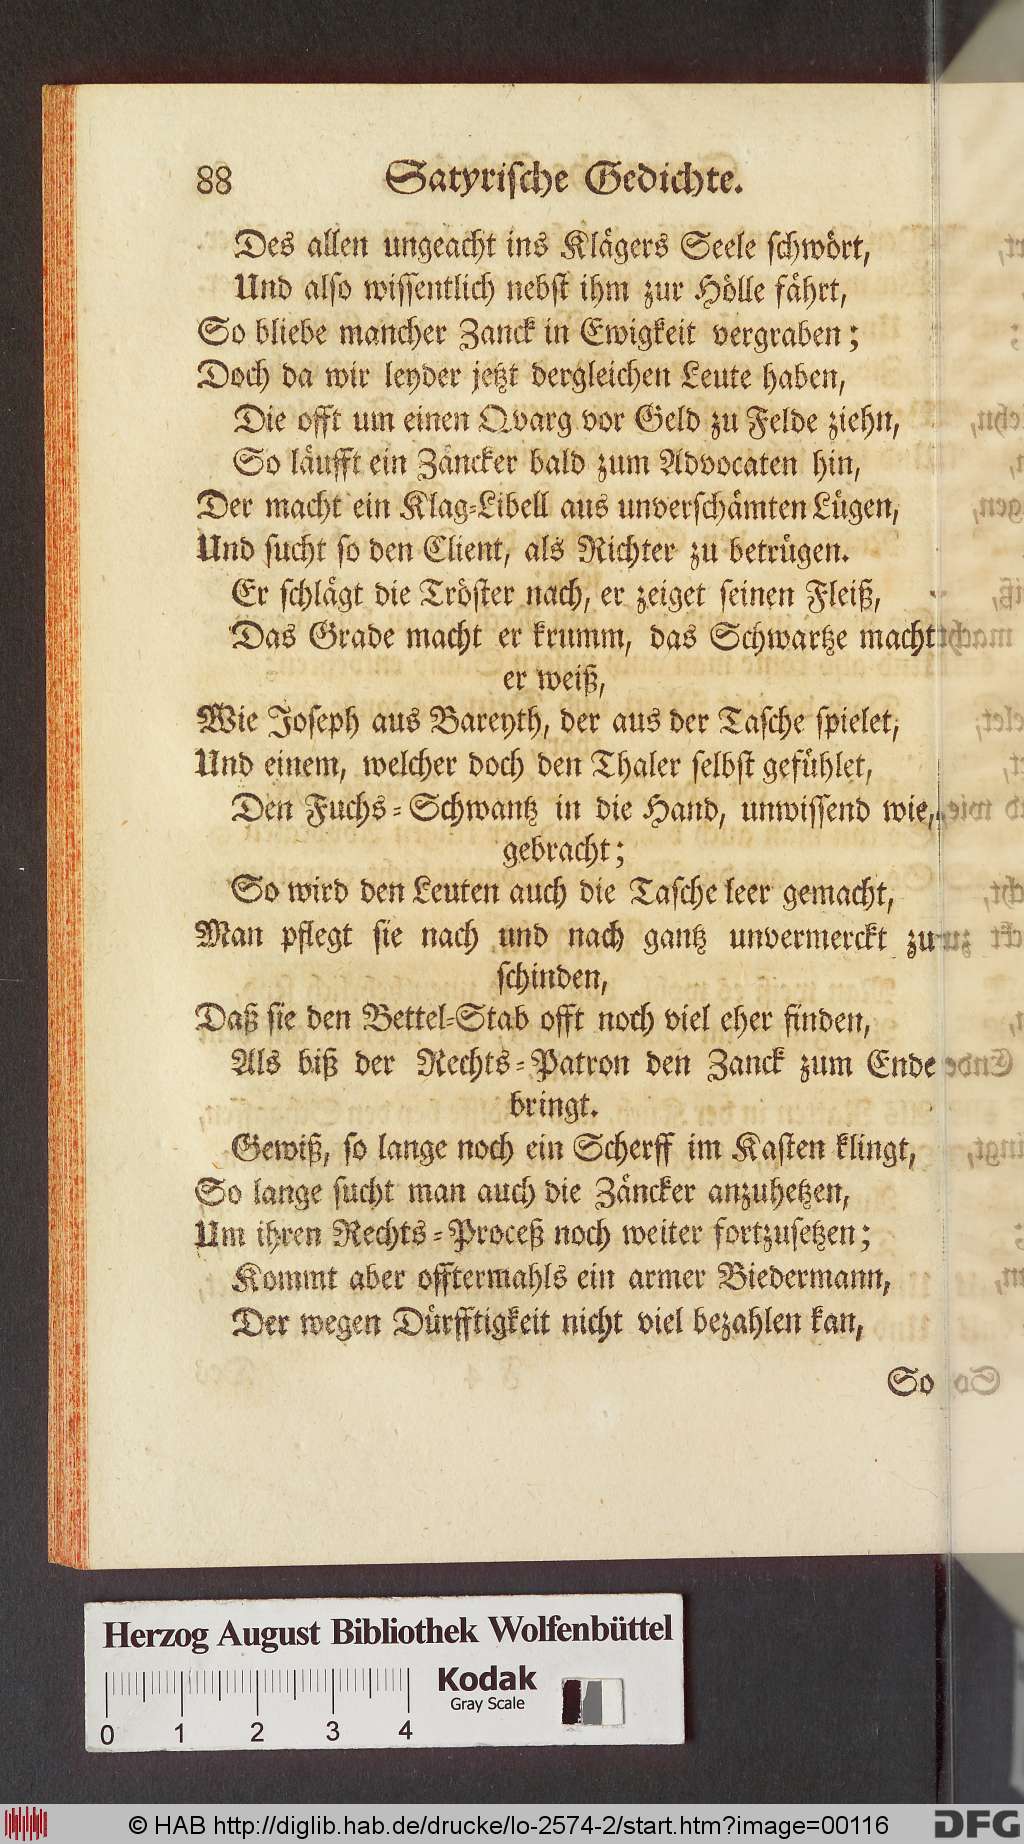 88 Satyrische Gedichte.
Des allen ungeacht ins Klägers Seele schwört,
Und also wissentlich nebst ihm zur Hölle fährt,
So bliebe mancher Zanck in Ewigkeit vergraben;
Doch da wir leyder jetzt dergleichen Leute haben,
Die offt um einen Qvarg vor Geld zu Felde ziehn,
So läufft ein Zäncker bald zum Advocaten hin,
Der macht ein Klag-Libell aus unverschämten Lügen,
Und sucht so den Client, als Richter zu betrügen.
Er schlägt die Tröster nach, er zeiget seinen Fleiß,
Das Grade macht er krumm, das Schwartze macht
er weiß,
Wie Joseph aus Bareyth, der aus der Tasche spielet,
Und einem, welcher doch den Thaler selbst gefühlet,
Den Fuchs-Schwantz in die Hand, unwissend wie,
gebracht;
So wird den Leuten auch die Tasche leer gemacht,
Man pflegt sie nach und nach gantz unvermerckt zu
schinden,
Daß sie den Bettel-Stab offt noch viel eher finden,
Als biß der Rechts-Patron den Zanck zum Ende
bringt.
Gewiß, so lange noch ein Scherff im Kasten klingt,
So lange sucht man auch die Zäncker anzuhetzen,
Um ihren Rechts-Proceß noch weiter fortzusetzen;
Kommt aber offtermahls ein armer Biedermann,
Der wegen Dürfftigkeit nicht viel bezahlen kan,
So
Herzog August Bibliothek Wolfenbüttel
Kodak
Gray Scale
0 1 2 3 4
© HAB http://diglib.hab.de/drucke/lo-2574-2/start.htm?image=00116
DFG